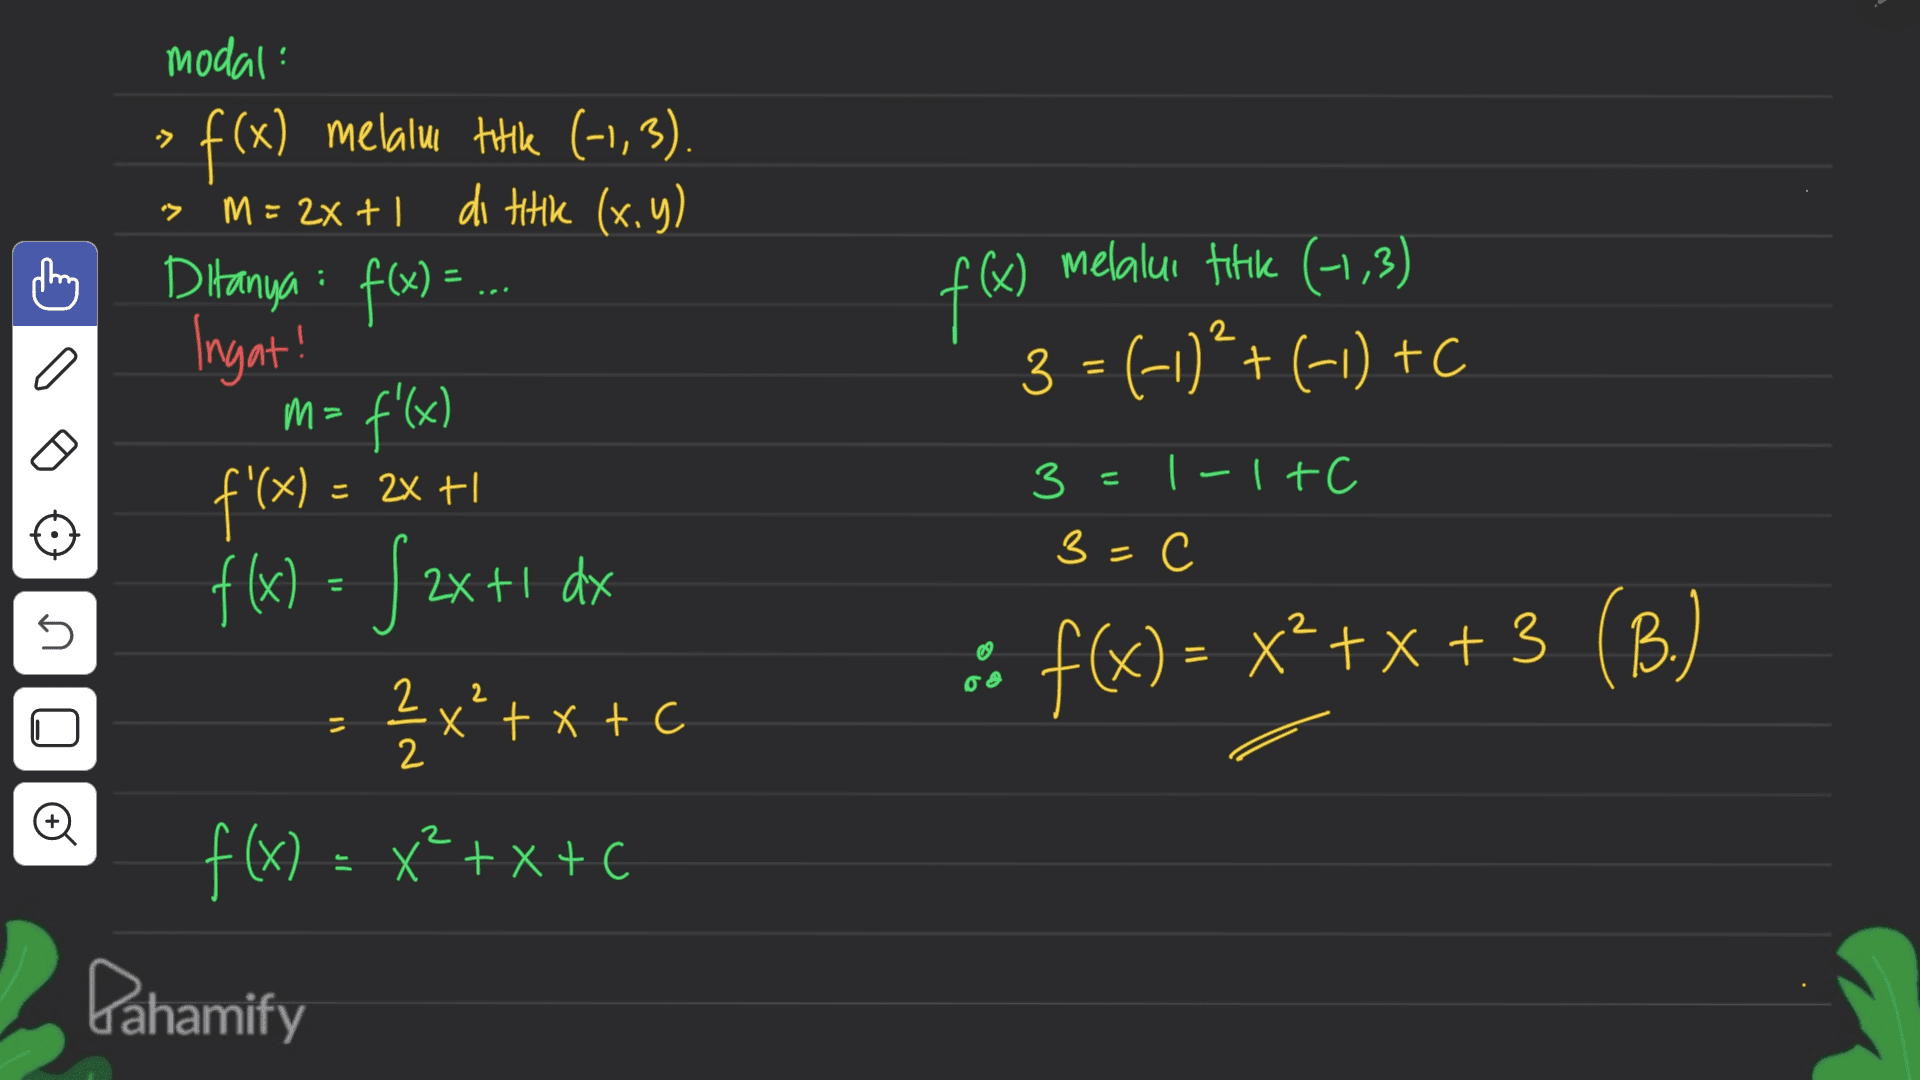 modal:
> f(x) melalui titik (-1,3).
> m = 2x + 1 di titik (x,y)
Ditanya: f(x) = ...
Ingat!
m = f'(x)
f'(x) = 2x + 1
f(x) = ∫ 2x + 1 dx
= 2/2 x² + x + C
f(x) = x² + x + C
f(x) melalui titik (-1,3)
3 = (-1)² + (-1) + C
3 = 1 - 1 + C
3 = C
∴ f(x) = x² + x + 3 (B.)
Pahamify